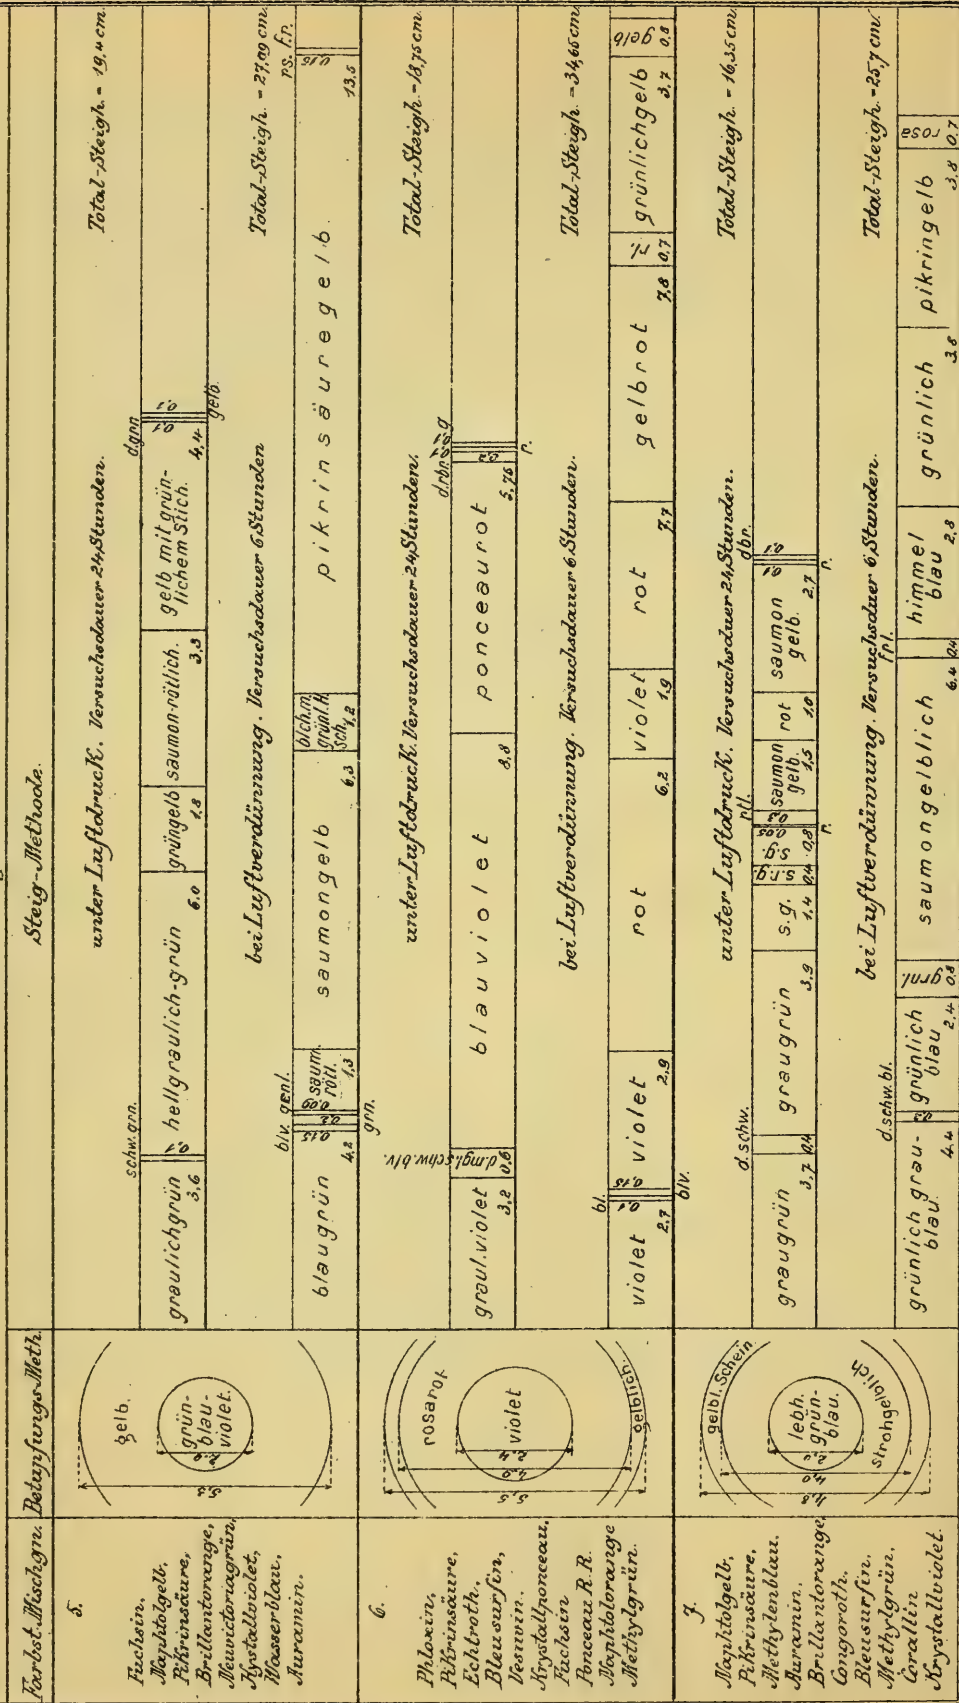 Farbst. Mischgn.
Betupfungs-Meth.
Steig-Methode.
5.
Fuchsin,
Naphtolgelb,
Pikrinsäure,
Brillantorange,
Neuvictoriagrün,
Kystallviolet,
Wasserblau,
Auramin.
gelb.
grün-
blau-
violet.
2,0
5,3
unter Luftdruck. Versuchsdauer 24 Stunden.
Total-Steigh. = 19,4 cm.
schw. grn.
d.grn
graulichgrün
3,6
0,1
hellgraulich-grün
6.0
grüngelb
1,8
saumon-rötlich.
3,3
gelb mit grün-
lichem Stich.
4,4
0,1
0,1
gelb.
bei Luftverdünnung. Versuchsdauer 6 Stunden
Total-Steigh. = 27,09 cm.
blv. grnl.
rs. f.r.
blaugrün
4,2
0,15
0,2
0,09
saum.
rötl.
1,3
saumongelb
6,3
blch.m.
grünl.h.
sch.
1,2
pikrinsäuregelb
13,5
0,15
grn.
6.
Phloxin,
Pikrinsäure,
Echtroth,
Bleu surfin,
Vesuvin.
Krystallponceau,
Fuchsin
Ponceau R.R.
Naphtolorange
Methylgrün.
rosarot
violet
gelblich.
2,4
4,9
5,5
unter Luftdruck. Versuchsdauer 24 Stunden.
Total-Steigh. = 18,75 cm.
d.rbr. g
graul.violet
3,2
d.mgl.schw.blv.
0,6
blauviolet
8,8
ponceaurot
5,75
0,2
0,1
0,1
r.
bei Luftverdünnung. Versuchsdauer 6 Stunden.
Total-Steigh. = 34,65 cm.
bl.
violet
2,7
0,1
0,15
violet
2,9
rot
6,2
violet
1,9
rot
7,7
gelbrot
7,8
rl.
0,7
grünlichgelb
3,7
gelb
0,8
blv.
7.
Naphtolgelb,
Pikrinsäure,
Methylenblau.
Auramin.
Brillantorange,
Congoroth.
Bleusurfin.
Methylgrün.
Corallin
Krystallviolet.
gelbl. Schein
lebh.
grün-
blau.
strohgelblich
4,0
4,8
unter Luftdruck. Versuchsdauer 24 Stunden.
Total-Steigh. = 16,35 cm.
d.schw.
rtl.
dbr.
graugrün
3,7
0,4
graugrün
3,9
s.g.
1,4
s.r.g.
0,4
s.g.
0,8
0,05
0,3
saumon
gelb.
1,5
rot
1,0
saumon
gelb.
2,7
0,1
0,1
r.
r.
bei Luftverdünnung. Versuchsdauer 6 Stunden.
Total-Steigh. = 25,7 cm.
d.schw.bl.
f.pl.
grünlich grau-
blau.
4,4
0,2
grünlich
blau
2,4
grnl.
0,8
saumongelblich
6,4
0,4
himmel
blau
2,8
grünlich
3,8
pikringelb
3,8
rosa
0,7